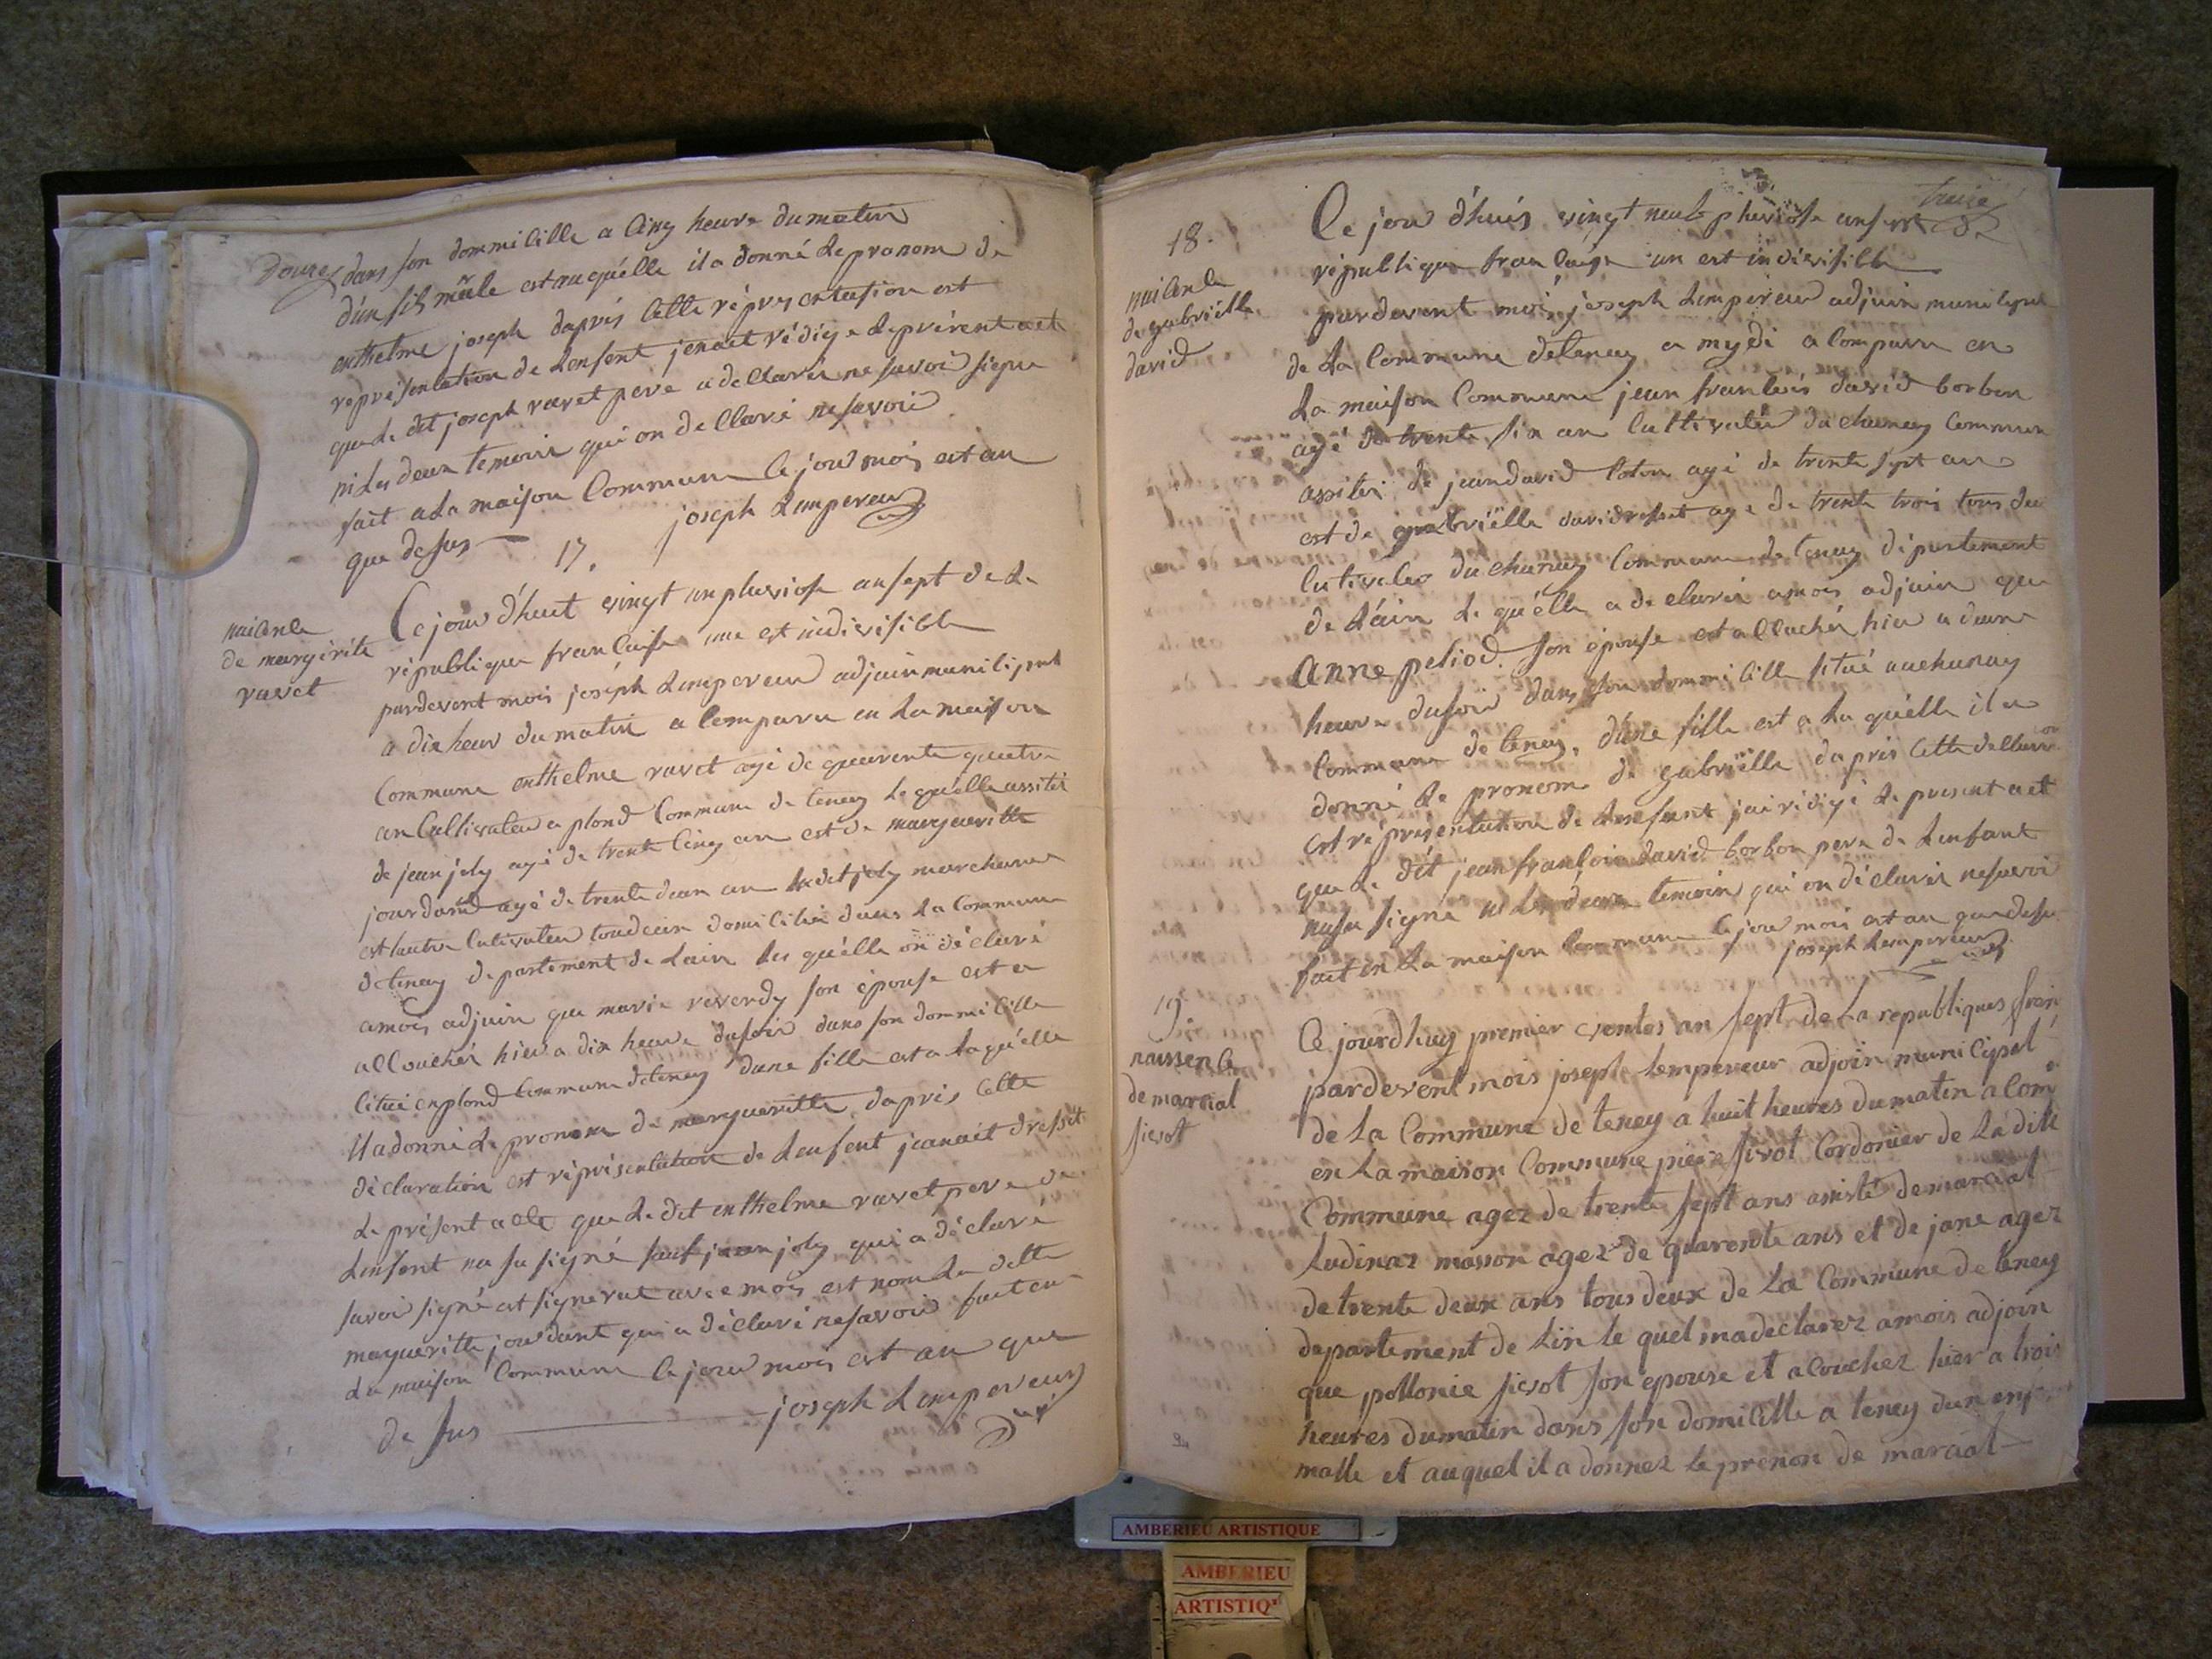 Douze
dans son dommicille a cinq heure du matin
d'un fils mâle est au quélle il a donné le pronom de
enthelme joseph daprés cette réprysentasion est
représentation de lenfent jenait rédigé le présent act
que le dit joseph ravet pere a declaré ne savoir signe
ni les deux temoin qui on decllaré ne savoir
fait a la maison Commune le jour mois est an
que desus
joseph Lempereur
17.
naicence
de margirite
ravet
Ce jour d'huit vingt un pluviose an sept de la
république francaise une est indivisible
pardevent mois joséph Lempereur adjuin municipal
a dix heur du matin a comparu en la maison
Commune enthelme ravet agé de quarente quatre
an Cultivateu a plond Commune de teney le quélle assités
de jean joly agé de trente cinq an est de margueritte
jourdand agé de trente deux an le dit joly marchand
est lautre cutivateu toudeux domicilié dans la Commune
de teney département de lain les quélle on déclaré
a mois adjuin que marie reverdy son épouse est a
allouchéz hier a dix heure dusoir dans son dommicille
citué en plond Commune de teney dune fille est a la quélle
il a donné le pronom de margueritte daprés cette
déclaration est réprisentation de lenfent jeanait dressét
le présent acte que le dit enthelme ravet pere de
lenfent na su signé sauf jean joly qui a déclaré
savoir signé est signerat avec mois est nom la dette
margueritte jourdant qui a déclaré nesavoir fait en
la maison Commune le jour mois est an que
de sus joseph Lempereur
treize
18.
naicence
de gabriélle
david
Ce jour d'huis vingt neuf pluviose an sept de la
république francaise un est indivisible
pardevent mois joseph Lempereur adjuin municipal
de la Commune de teney a mydi a comparu en
la maison Commune jean francois david borbon
agé de trente six an cultivateu du chanay Commun
assités de jean david coton agé de trente sept an
est de gabriëlle david agé de trente trois tous deu
cutivateu du chanay Commune de teney département
de láin le quélle a declaré a mois adjuin que
anne petiod son épouse est allouchéz hier a deux
heure dusoir dans son dommicille situé au chanay
Commune de teney, d'une fille est a la quélle il a
donné le pronom de gabriëlle daprés cette dellara
on
est réprésentation de lenfent jai rédigé le present act
que le dit jean francois david borbon pere de lenfant
nasu signe ni les deux temoin qui on déclaréz nesavoir
fait en la maison Commune le jour mois est an que desu
joseph Lempereur
19.
naissence
de marcial
sivot
Ce jourdhuy premier ventos an sept de la republiques fran
pardevent mois joseph lempereur adjoin municipal
de la Commune de teney a huit heures du matin a com
en la maison Commune piere sivot Cordonier de la dite
Commune agez de trente sept ans asisté de marcial
Ludinaz masson agez de quarente ans et de jane agez
de trente deux ans tous deux de la Commune de teney
departement de lin le quel ma declarez a mois adjoin
que pollonie sivot son epouse et acouchez hier a trois
heures du matin dans son domicille a teney dun enf
malle et auquel il a donnez le prenon de marcial
AMBERIEU ARTISTIQUE
AMBERIEU
ARTISTIQ